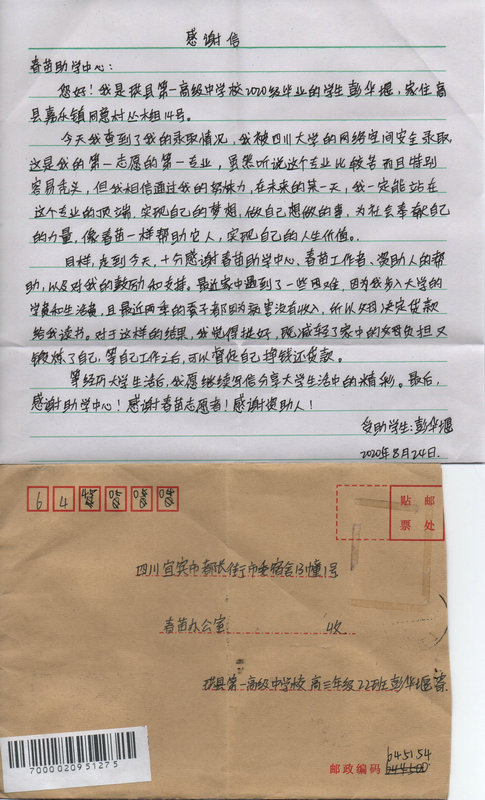 感谢信
春苗助学中心：
您好！我是珙县第一高级中学校2020级毕业的学生彭华堰，家住高
县嘉乐镇同意村丛木组14号。
今天我查到了我的录取情况，我被四川大学的网络空间安全录取，
这是我的第一志愿的第一专业，虽然听说这个专业比较苦而且特别
容易，但我相信通过我的努力，在未来的某一天，我一定能站在
这个专业的顶端，实现自己的梦想，做自己想做的事，为社会奉献自己
的力量，像春苗一样帮助它人，实现自己的人生价值。
目样，走到今天，十分感谢春苗助学中心、春苗工作者、资助人的帮
助，以及对我的鼓励和支持。最近家中遇到了一些困难，因为我步入大学的
学费和生活费，且最近两季的蚕子都因为病害没有收入，所以父母决定贷款
给我读书。对于这样的结果，我觉得挺好，既减轻了家中的父母负担又
锻炼了自己，等自己工作之后，可以督促自己挣钱还贷款。
等经历大学生活后，我愿继续写信分享大学生活中的精彩。最后，
感谢助学中心！感谢春苗志愿者！感谢资助人！
受助学生：彭华堰
2020年8月24日.
6 4
贴 邮
票 处
四川宜宾市都长街市委宿舍131幢1号
春苗办公室 收
珙县第一高级中学校 高三年级22班 彭华堰寄
645154
邮政编码
7000020951275